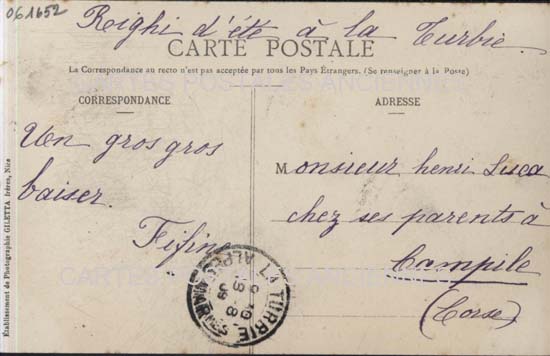 061652
Righi d'été à la Turbie.
CARTE POSTALE
La Correspondance au recto n'est pas acceptée par tous les Pays Étrangers. (Se renseigner à la Poste)
CARTES POSTALES ANCIENNES
CORRESPONDANCE
Un gros gros
baiser.
Fifine
ADRESSE
Monsieur henri Luca
chez ses parents à
Campile
(Corse)
LA TURBIE
ALPES-MARIT
Établissement de Photographie GILETTA frères, Nice